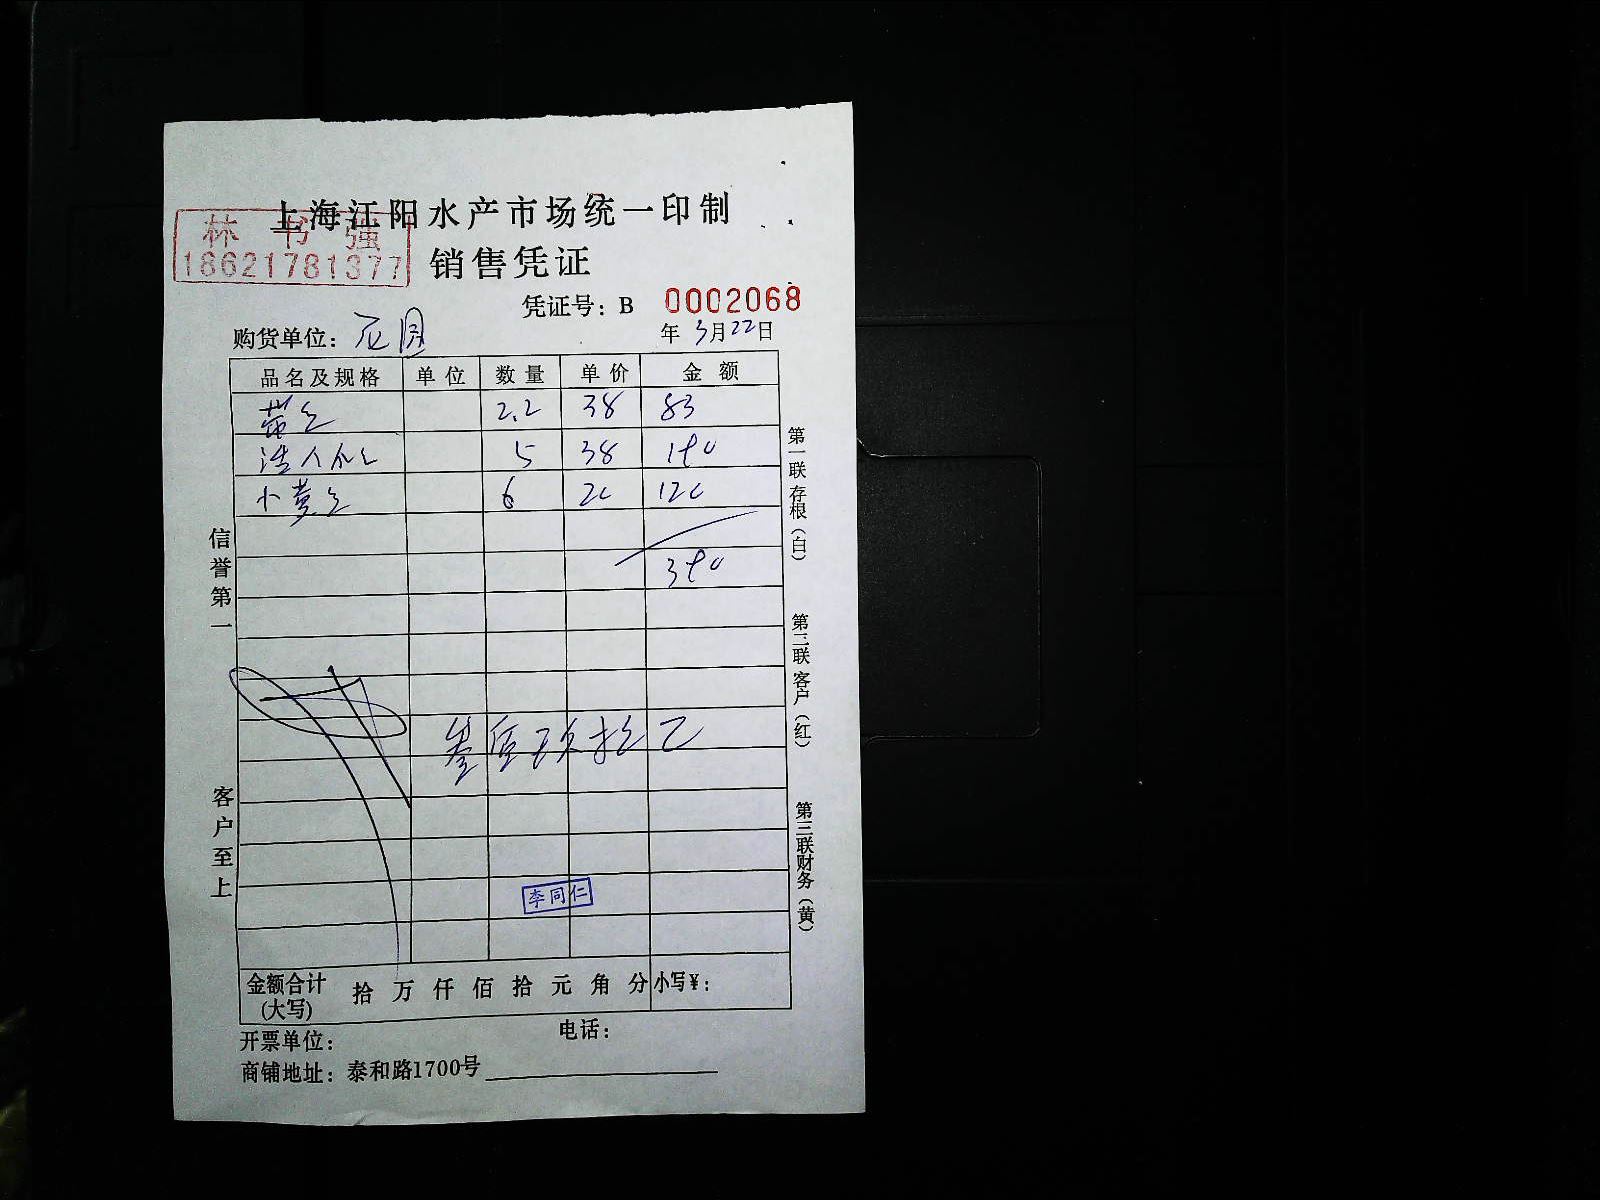 上海江阳水产市场统一印制
林书强
18621781377
销售凭证
凭证号：B 0002068
购货单位：
年 3月22日
品名及规格 单位 数量 单价 金额
2.2 38 83
5 38 190
小黄 6 20 120
390
叁佰玖拾元
李同仁
金额合计(大写) 拾 万 仟 佰 拾 元 角 分 小写¥：
开票单位： 电话：
商铺地址：泰和路1700号
信誉第一
客户至上
第一联存根（白）
第二联客户（红）
第三联财务（黄）